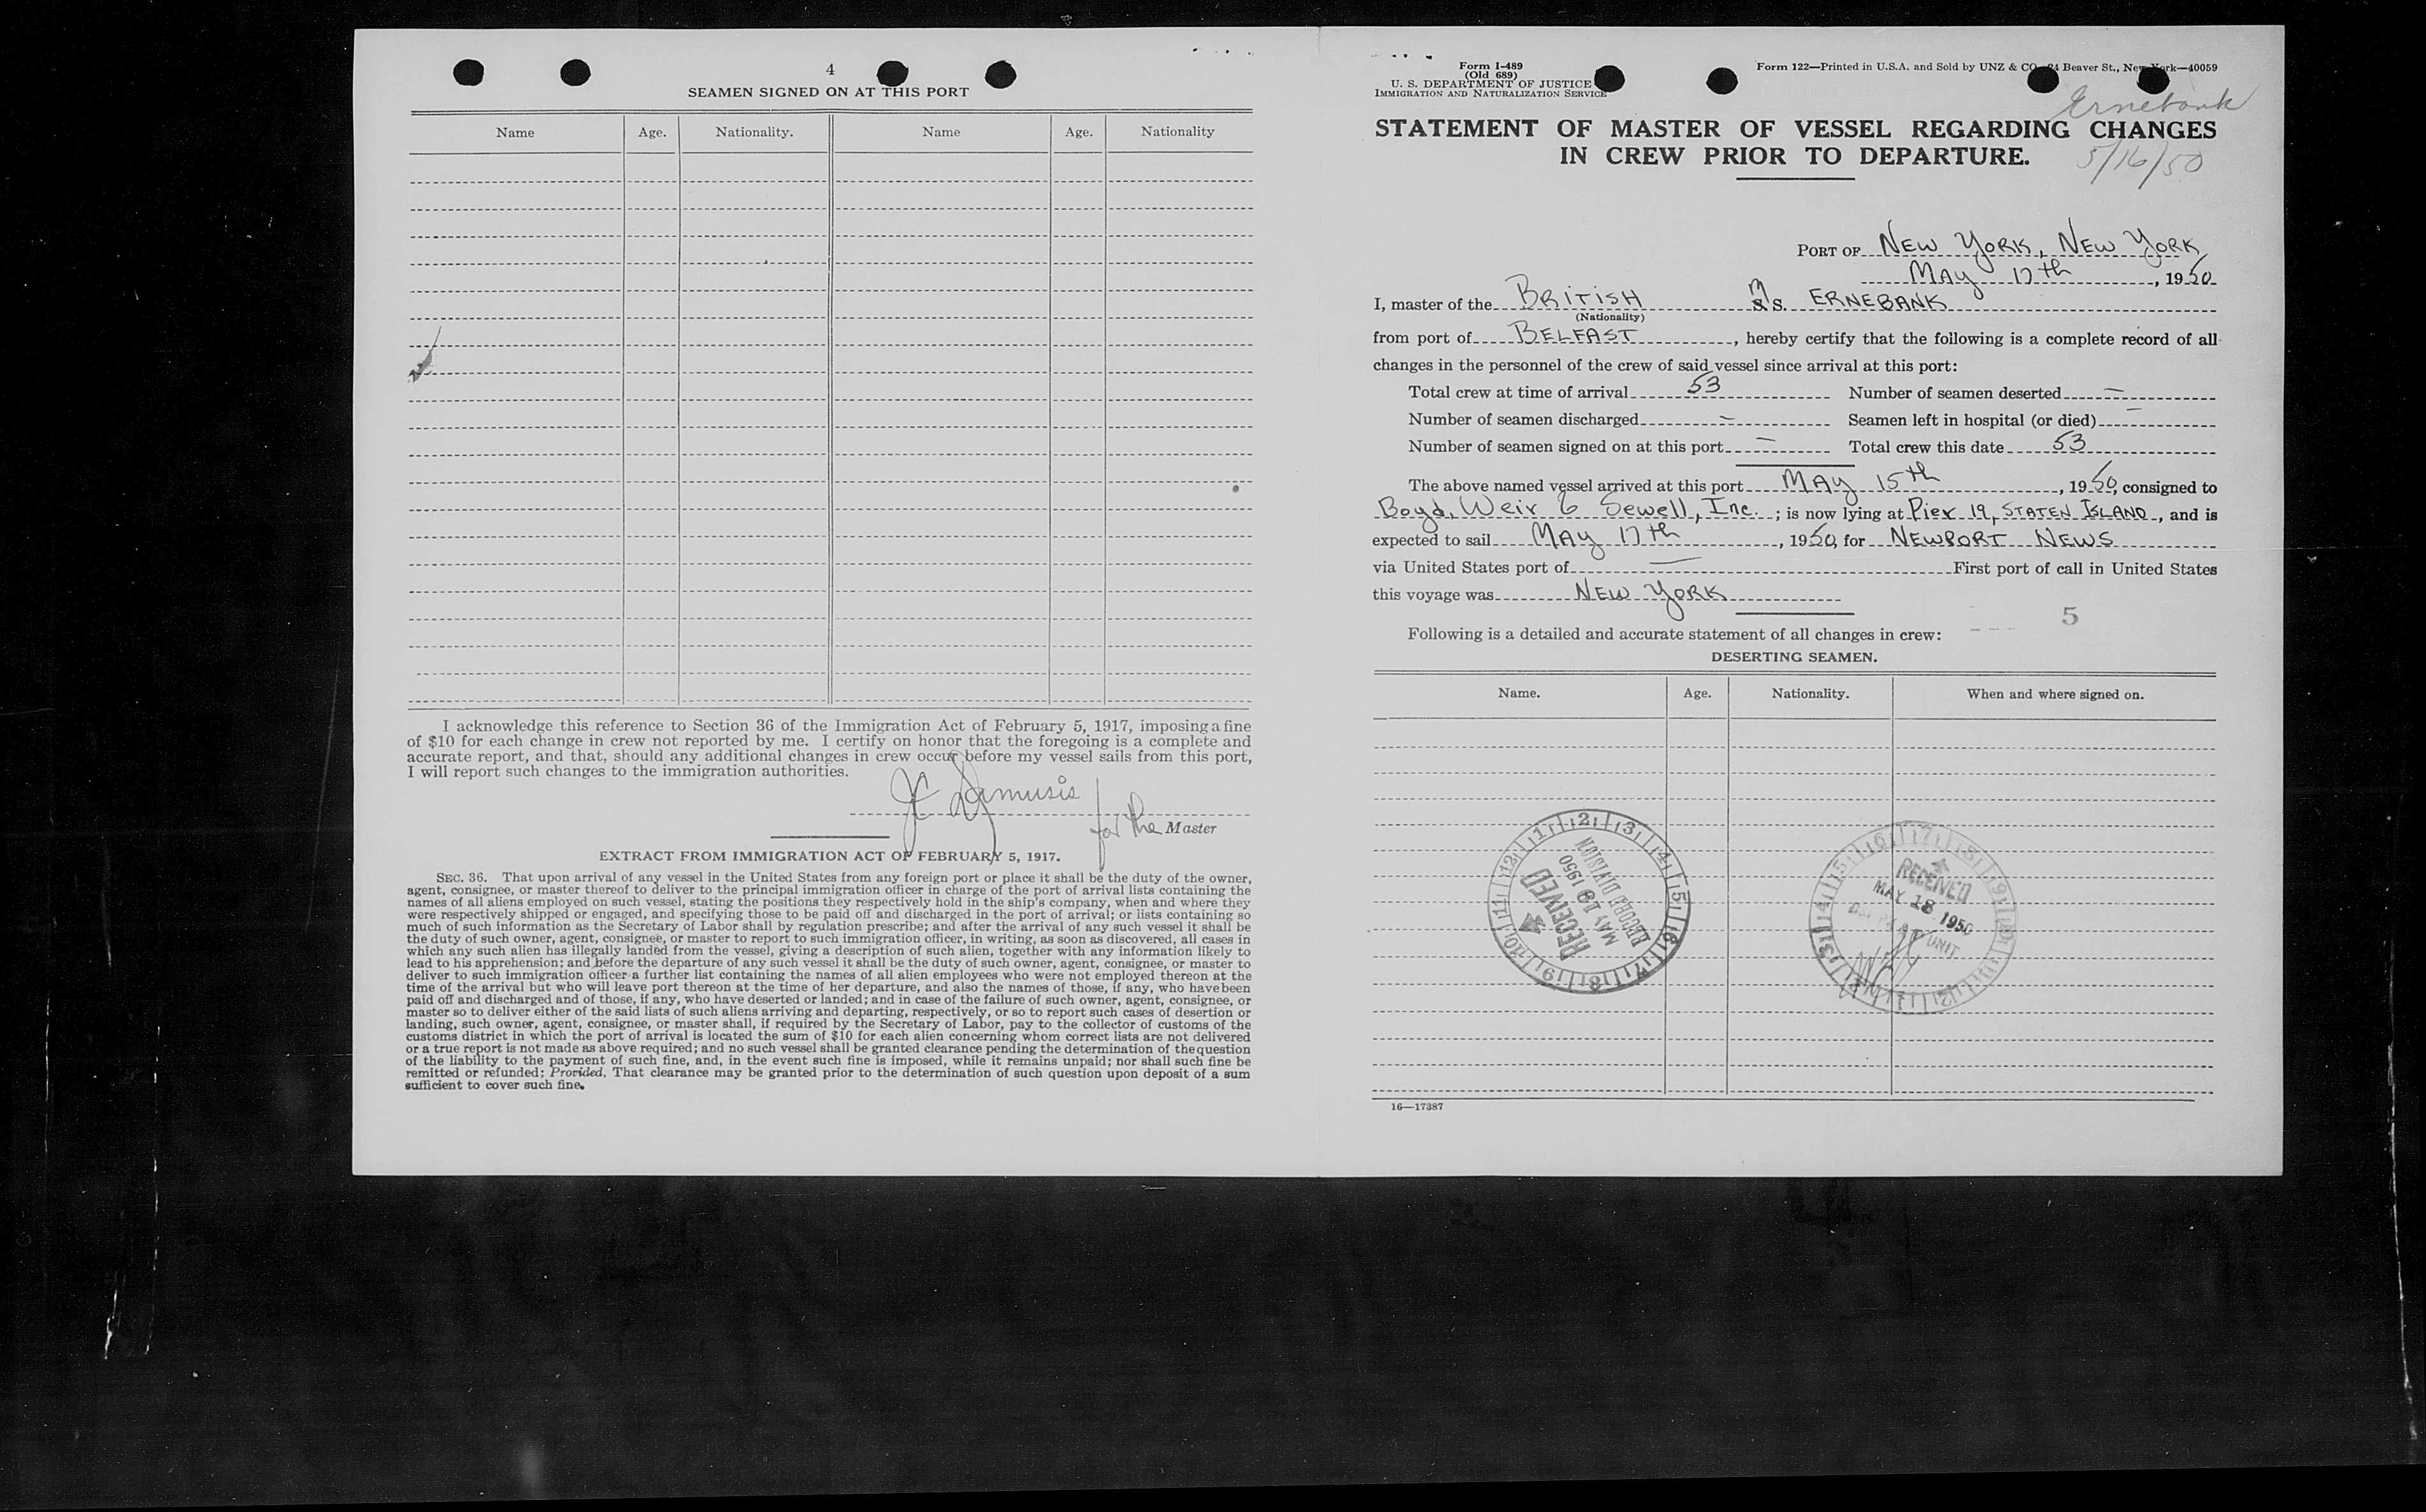 4
SEAMEN SIGNED ON AT THIS PORT
Name Age. Nationality. Name Age. Nationality
I acknowledge this reference to Section 36 of the Immigration Act of February 5, 1917, imposing a fine
of $10 for each change in crew not reported by me. I certify on honor that the foregoing is a complete and
accurate report, and that, should any additional changes in crew occur before my vessel sails from this port,
I will report such changes to the immigration authorities.
for the Master
EXTRACT FROM IMMIGRATION ACT OF FEBRUARY 5, 1917.
SEC. 36. That upon arrival of any vessel in the United States from any foreign port or place it shall be the duty of the owner,
agent, consignee, or master thereof to deliver to the principal immigration officer in charge of the port of arrival lists containing the
names of all aliens employed on such vessel, stating the positions they respectively hold in the ship's company, when and where they
were respectively shipped or engaged, and specifying those to be paid off and discharged in the port of arrival; or lists containing so
much of such information as the Secretary of Labor shall by regulation prescribe; and after the arrival of any such vessel it shall be
the duty of such owner, agent, consignee, or master to report to such immigration officer, in writing, as soon as discovered, all cases in
which any such alien has illegally landed from the vessel, giving a description of such alien, together with any information likely to
lead to his apprehension; and before the departure of any such vessel it shall be the duty of such owner, agent, consignee, or master to
deliver to such immigration officer a further list containing the names of all alien employees who were not employed thereon at the
time of the arrival but who will leave port thereon at the time of her departure, and also the names of those, if any, who have been
paid off and discharged and of those, if any, who have deserted or landed; and in case of the failure of such owner, agent, consignee, or
master so to deliver either of the said lists of such aliens arriving and departing, respectively, or so to report such cases of desertion or
landing, such owner, agent, consignee, or master shall, if required by the Secretary of Labor, pay to the collector of customs of the
customs district in which the port of arrival is located the sum of $10 for each alien concerning whom correct lists are not delivered
or a true report is not made as above required; and no such vessel shall be granted clearance pending the determination of the question
of the liability to the payment of such fine, and, in the event such fine is imposed, while it remains unpaid; nor shall such fine be
remitted or refunded: Provided, That clearance may be granted prior to the determination of such question upon deposit of a sum
sufficient to cover such fine.
Form I-489
(Old 689)
U. S. DEPARTMENT OF JUSTICE
IMMIGRATION AND NATURALIZATION SERVICE
Form 122—Printed in U.S.A. and Sold by UNZ & CO 24 Beaver St., New York—40059
Ernebank
STATEMENT OF MASTER OF VESSEL REGARDING CHANGES
IN CREW PRIOR TO DEPARTURE.
5/16/50
PORT OF NEW YORK, NEW YORK
MAY 17th, 1950
I, master of the BRITISH M S. ERNEBANK
(Nationality)
from port of BELFAST, hereby certify that the following is a complete record of all
changes in the personnel of the crew of said vessel since arrival at this port:
Total crew at time of arrival 53 Number of seamen deserted —
Number of seamen discharged — Seamen left in hospital (or died) —
Number of seamen signed on at this port — Total crew this date 53
The above named vessel arrived at this port MAY 15th, 1950, consigned to
Boyd, Weir & Sewell, Inc.; is now lying at Pier 19, STATEN ISLAND, and is
expected to sail MAY 17th, 1950, for NEWPORT NEWS
via United States port of — First port of call in United States
this voyage was NEW YORK
5
Following is a detailed and accurate statement of all changes in crew:
DESERTING SEAMEN.
Name. Age. Nationality. When and where signed on.
RECEIVED
MAY 19 1950
RECORD DIVISION
RECEIVED
MAY 18 1950
UNIT
16—17387